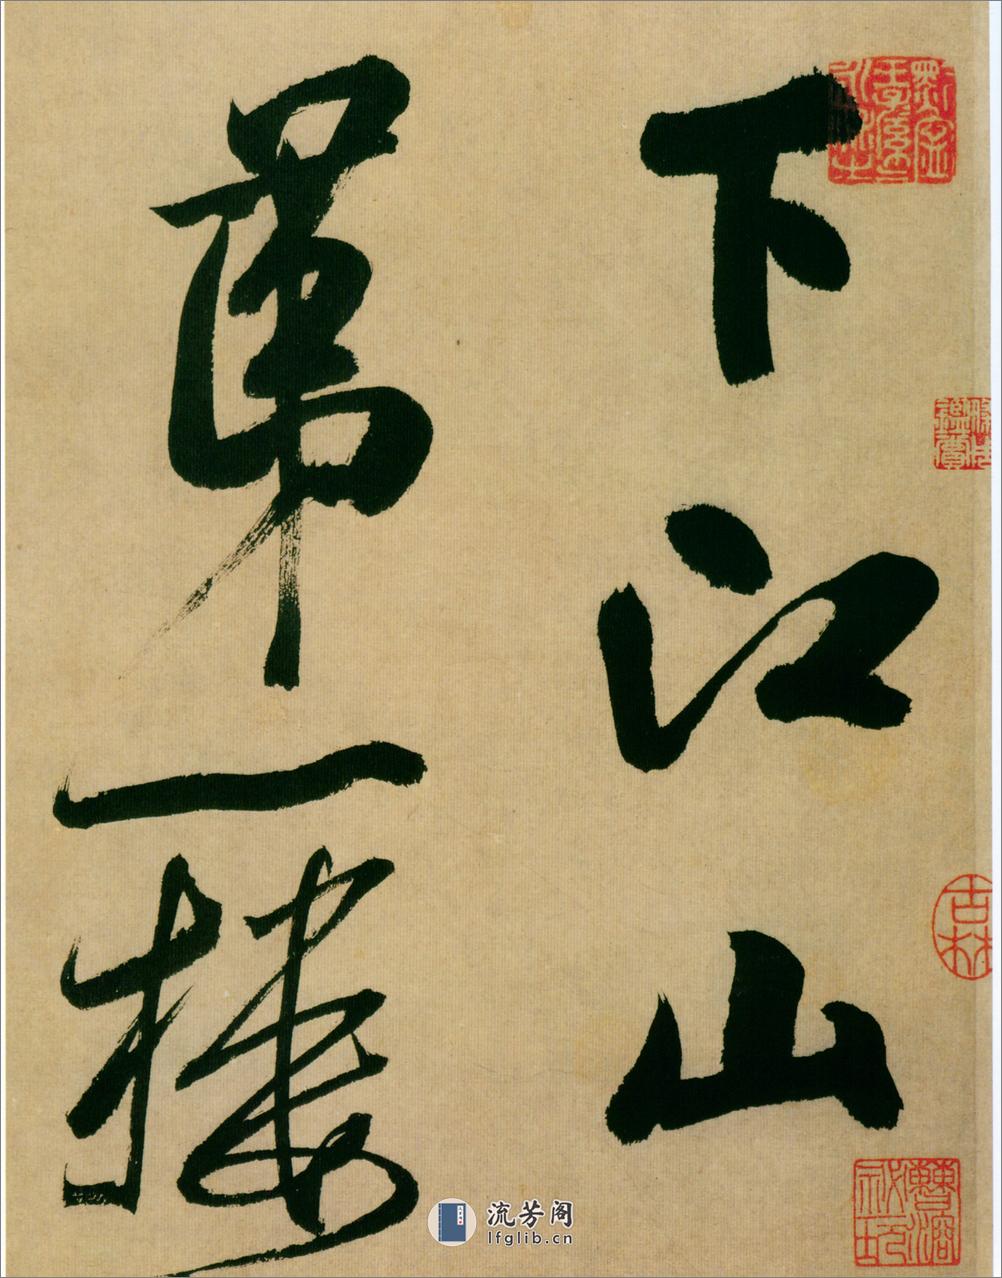 下江山
第一樓
吉林
流芳阁
lfglib.cn